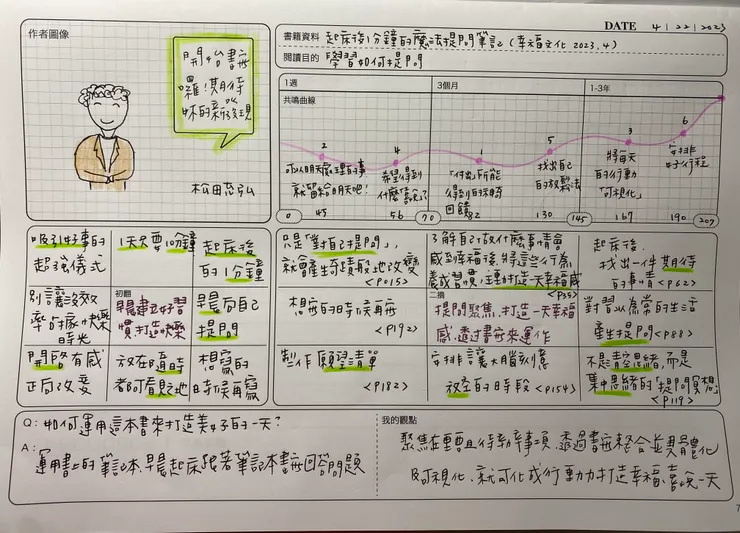 DATE 4 | 22 | 2023
作者圖像
開始書寫
囉!期待
妳的新發現
松田充弘
書籍資料 起床後1分鐘的魔法提問筆記(幸福文化 2023.4)
閱讀目的 學習如何提問
1週
3個月
1-3年
共鳴曲線
2
可以明天處理的事
就留給明天吧!
4
希望得到
什麼
1
「付出」所能
得到的
回饋
5
找出自己
的放鬆法
3
將每天
的行動
「可視化」
6
安排
好行程
0
45
56
70
82
130
145
167
190
207
吸引好事的
起強儀式
1天只要1分鐘
起床後
的1分鐘
別讓沒效
率的
時光
初翻
早晨建立好習
慣,打造快樂
早晨向自己
提問
開啓有感
正向改變
放在隨時
都可看見之地
想寫的
時候再寫
只是「對自己提問」,
就會產生奇蹟般地改變
<P015>
了解自己做什麼事情會
感到幸福後,將這些行為
養成習慣,主動打造一天幸福感
<P35>
起床後,
找出一件期待
的事情<P62>
想寫的時候再寫
<P192>
二摘
提問聚焦,打造一天幸福
感,透過書寫來運作
對習以為常的生活
產生提問<P88>
製作願望清單
<P182>
安排讓大腦刻意
放空的時段<P154>
不是清空思緒,而是
集中思緒的「提問冥想」
<P119>
Q: 如何運用這本書來打造美好的一天?
A: 運用書上的筆記本,早晨起床跟著筆記本書寫回答問題
我的觀點
聚焦在重要且待執行事項,透過書寫整合並具體化
及可視化,就可化成行動力打造幸福喜悅一天
7